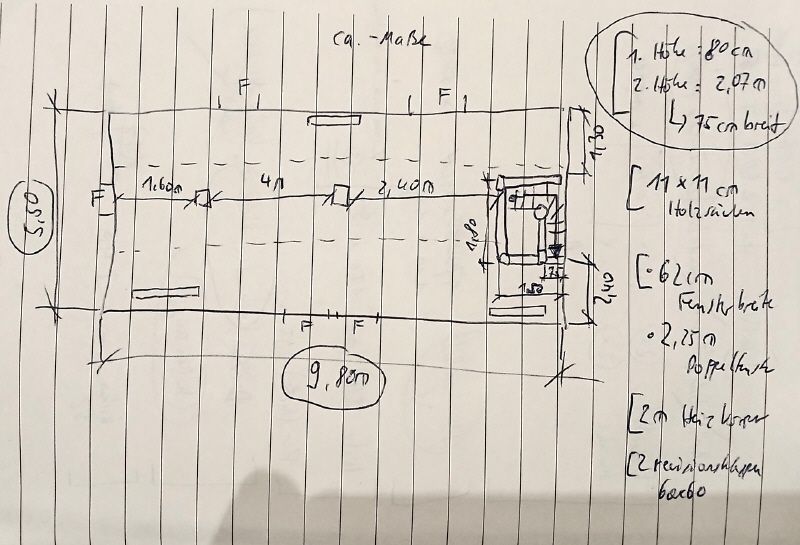 ca. -Maße
1. Höhe = 80 cm
2. Höhe = 2,07m
↳ 75cm breit
F
F
1,30
F
1,60m
4m
2,40m
11 x 11 cm
5,50
1,80
1,50
2,40
F
F
9,80m
[• 62cm
Fensterbreite
• 2,25m
[2m Heizkörper
[2 revisionsklappen
60x60